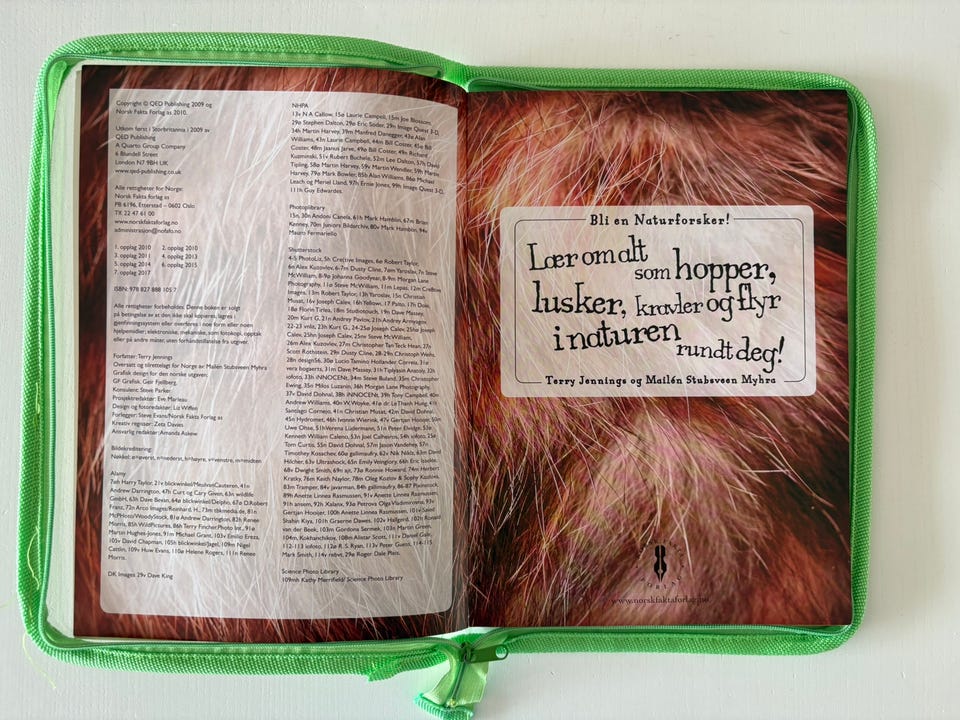 Copyright © QED Publishing 2009 og
Norsk Fakta Forlag as 2010.
Utkom først i Storbritannia i 2009 av
QED Publishing
A Quarto Group Company
6 Blundell Street
London N7 9BH UK
www.qed-publishing.co.uk
Alle rettigheter for Norge:
Norsk Fakta forlag as
PB 6196, Etterstad – 0602 Oslo
Tlf. 22 47 61 00
www.norskfaktaforlag.no
administrasjon@nofafo.no
1. opplag 2010 2. opplag 2010
3. opplag 2011 4. opplag 2013
5. opplag 2014 6. opplag 2015
7. opplag 2017
ISBN: 978 827 888 105 7
Alle rettigheter forbeholdes. Denne boken er solgt
på betingelse av at den ikke skal kopieres, lagres i
gjenfinningssystem eller overføres i noe form eller noen
hjelpemidler, elektroniske, mekaniske, som fotokopi, opptak
eller på andre måter, uten forhåndstillatelse fra utgiver.
Forfatter: Terry Jennings
Oversatt og tilrettelagt for Norge av Mailén Stubsveen Myhra
Grafisk design for den norske utgaven:
GP Grafisk, Geir Fjellberg.
Konsulent: Steve Parker
Prosjektredaktør: Eve Marleau
Design og fotoredaktør: Liz Wiffen
Forlegger: Steve Evans/Norsk Fakta Forlag as
Kreativ regissør: Zeta Davies
Ansvarlig redaktør: Amanda Askew
Bildekreditering:
Nøkkel: ø=øverst, n=nederst, h=høyre, v=venstre, m=midten
Alamy
7øh Harry Taylor, 21v blickwinkel/MeulvonCauteren, 41n
Andrew Darrington, 47h Curt og Cary Given, 63n wildlife
GmbH, 63h Dave Bevan, 64ø blickwinkel/Delpho, 67ø D.Robert
Franz, 72n Arco Images/Reinhard, H., 73m tbkmedia.de, 81v
McPHoto/WoodyStock, 81ø Andrew Darrington, 83h Renee
Morris, 85h WildPictures, 86h Terry Fincher.Photo Int., 91ø
Martin Hughes-Jones, 91m Michael Grant, 103v Emilio Ereza,
105v David Chapman, 105h blickwinkel/Jagel, 109m Nigel
Cattlin, 109v Huw Evans, 110ø Helene Rogers, 111n Renee
Morris.
DK Images 29v Dave King
NHPA
13v N A Callow, 15ø Laurie Campell, 15m Joe Blossom,
29ø Stephen Dalton, 29ø Eric Soder, 29n Image Quest 3-D,
34h Martin Harvey, 39m Manfred Danegger, 43ø Alan
Williams, 43n Laurie Campbell, 44m Bill Coster, 45ø Bill
Coster, 48m Jaanus Jarve, 49ø Bill Coster, 49n Richard
Kuzminski, 51v Robert Buchele, 52m Lee Dalton, 57h David
Tipling, 58ø Martin Harvey, 59v Martin Wendler, 59h Martin
Harvey, 79ø Mark Bowler, 85b Alan Williams, 86ø Michael
Leach og Meriel Lland, 97h Ernie Jones, 99h Image Quest 3-D,
111h Guy Edwardes.
Photoplibrary
15n, 30n Andoni Canela, 61h Mark Hamblin, 67n Brian
Kenney, 70m Juniors Bildarchiv, 80v Mark Hamblin, 94v
Mauro Fermariello
Shutterstock
4-5 PhotoLiz, 5h Cre@tive Images, 6ø Robert Taylor,
6n Alex Kuzovlev, 6-7m Dusty Cline, 7øm Yaroslav, 7n Steve
McWilliam, 8-9ø Johanna Goodyear, 8-9n Morgan Lane
Photography, 11ø Steve McWilliam, 11m Lepas, 12m Cre@tive
Images, 13m Robert Taylor, 13h Yaroslav, 15n Christian
Musat, 16v Joseph Calev, 16h Yellowj, 17 Patto, 17h Dole,
18ø Florin Tirlea, 18m Studiotouch, 19ø Dave Massey,
20m Kurt G, 21n Andrey Pavlov, 21h Andrey Armyagov,
22-23 vnlit, 23h Kurt G., 24-25ø Joseph Calev, 25hø Joseph
Calev, 25hn Joseph Calev, 25nv Steve McWilliam,
26m Alex Kuzovlev, 27m Christopher Tan Teck Hean, 27n
Scott Rothstein, 29ø Dusty Cline, 28-29n Christoph Weihs,
28n design56, 30ø Lucio Tamino Hollander Correia, 31ø
vera bogaerts, 31m Dave Massey, 31h Tiplyasin Anatoly, 32h
iofoto, 33h iNNOCENt, 34m Steve Buland, 35m Christopher
Ewing, 35n Milos Luzanin, 36h Morgan Lane Photography,
37v David Dohnal, 38h iNNOCENt, 39h Tony Campbell, 40m
Andrew Williams, 40n W.Woyke, 41ø dr. Le Thanh Hung, 41h
Santiago Cornejo, 41n Christian Musat, 42m David Dohnal,
45n Hydromet, 46h Ivonne Wierink, 47v Gertjan Hooijer, 50m
Uwe Ohse, 51h Verena Lüdermann, 51n Peter Elvidge, 53n
Kenneth William Caleno, 53n Joel Calheiros, 54h iofoto, 25n
Tom Curtis, 55n David Dohnal, 57m Jason Vandehey, 57n
Timothey Kosachev, 60ø gallimaufry, 62v Nik Niklz, 63m David
Hilcher, 63v Ultrashock, 65n Emily Veinglory, 66h Eric Isselée,
68v Dwight Smith, 69n ajt, 73ø Ronnie Howard, 74m Herbert
Kratky, 76m Keith Naylor, 78m Oleg Kozlov & Sophy Kozlova,
83m Tramper, 84v javarman, 84h gallimaufry, 86-87 Pixinstock,
89h Anette Linnea Rasmussen, 91v Anette Linnea Rasmussen,
91h ansem, 92h Kalana, 93ø Petrova Olga Vladimirovna, 93n
Gertjan Hooijer, 100h Anette Linnea Rasmussen, 101v Saied
Shahin Kiya, 101h Graeme Dawes, 102v Hallgerd, 102h Ronald
van der Beek, 103m Gordona Sermek, 103n Martin Green,
104m, Kokhanchikov, 108m Alistair Scott, 111v Daniel Gale,
112-113 iofoto, 112ø R. S. Ryan, 113v Peter Guess, 114-115
Mark Smith, 114v rebvt, 29ø Roger Dale Pleis.
Science Photo Library
109mh Kathy Merrifield/ Science Photo Library
Bli en Naturforsker!
Lær om alt
som hopper,
lusker, kravler og flyr
i naturen
rundt deg!
Terry Jennings og Mailén Stubsveen Myhra
www.norskfaktaforlag.no